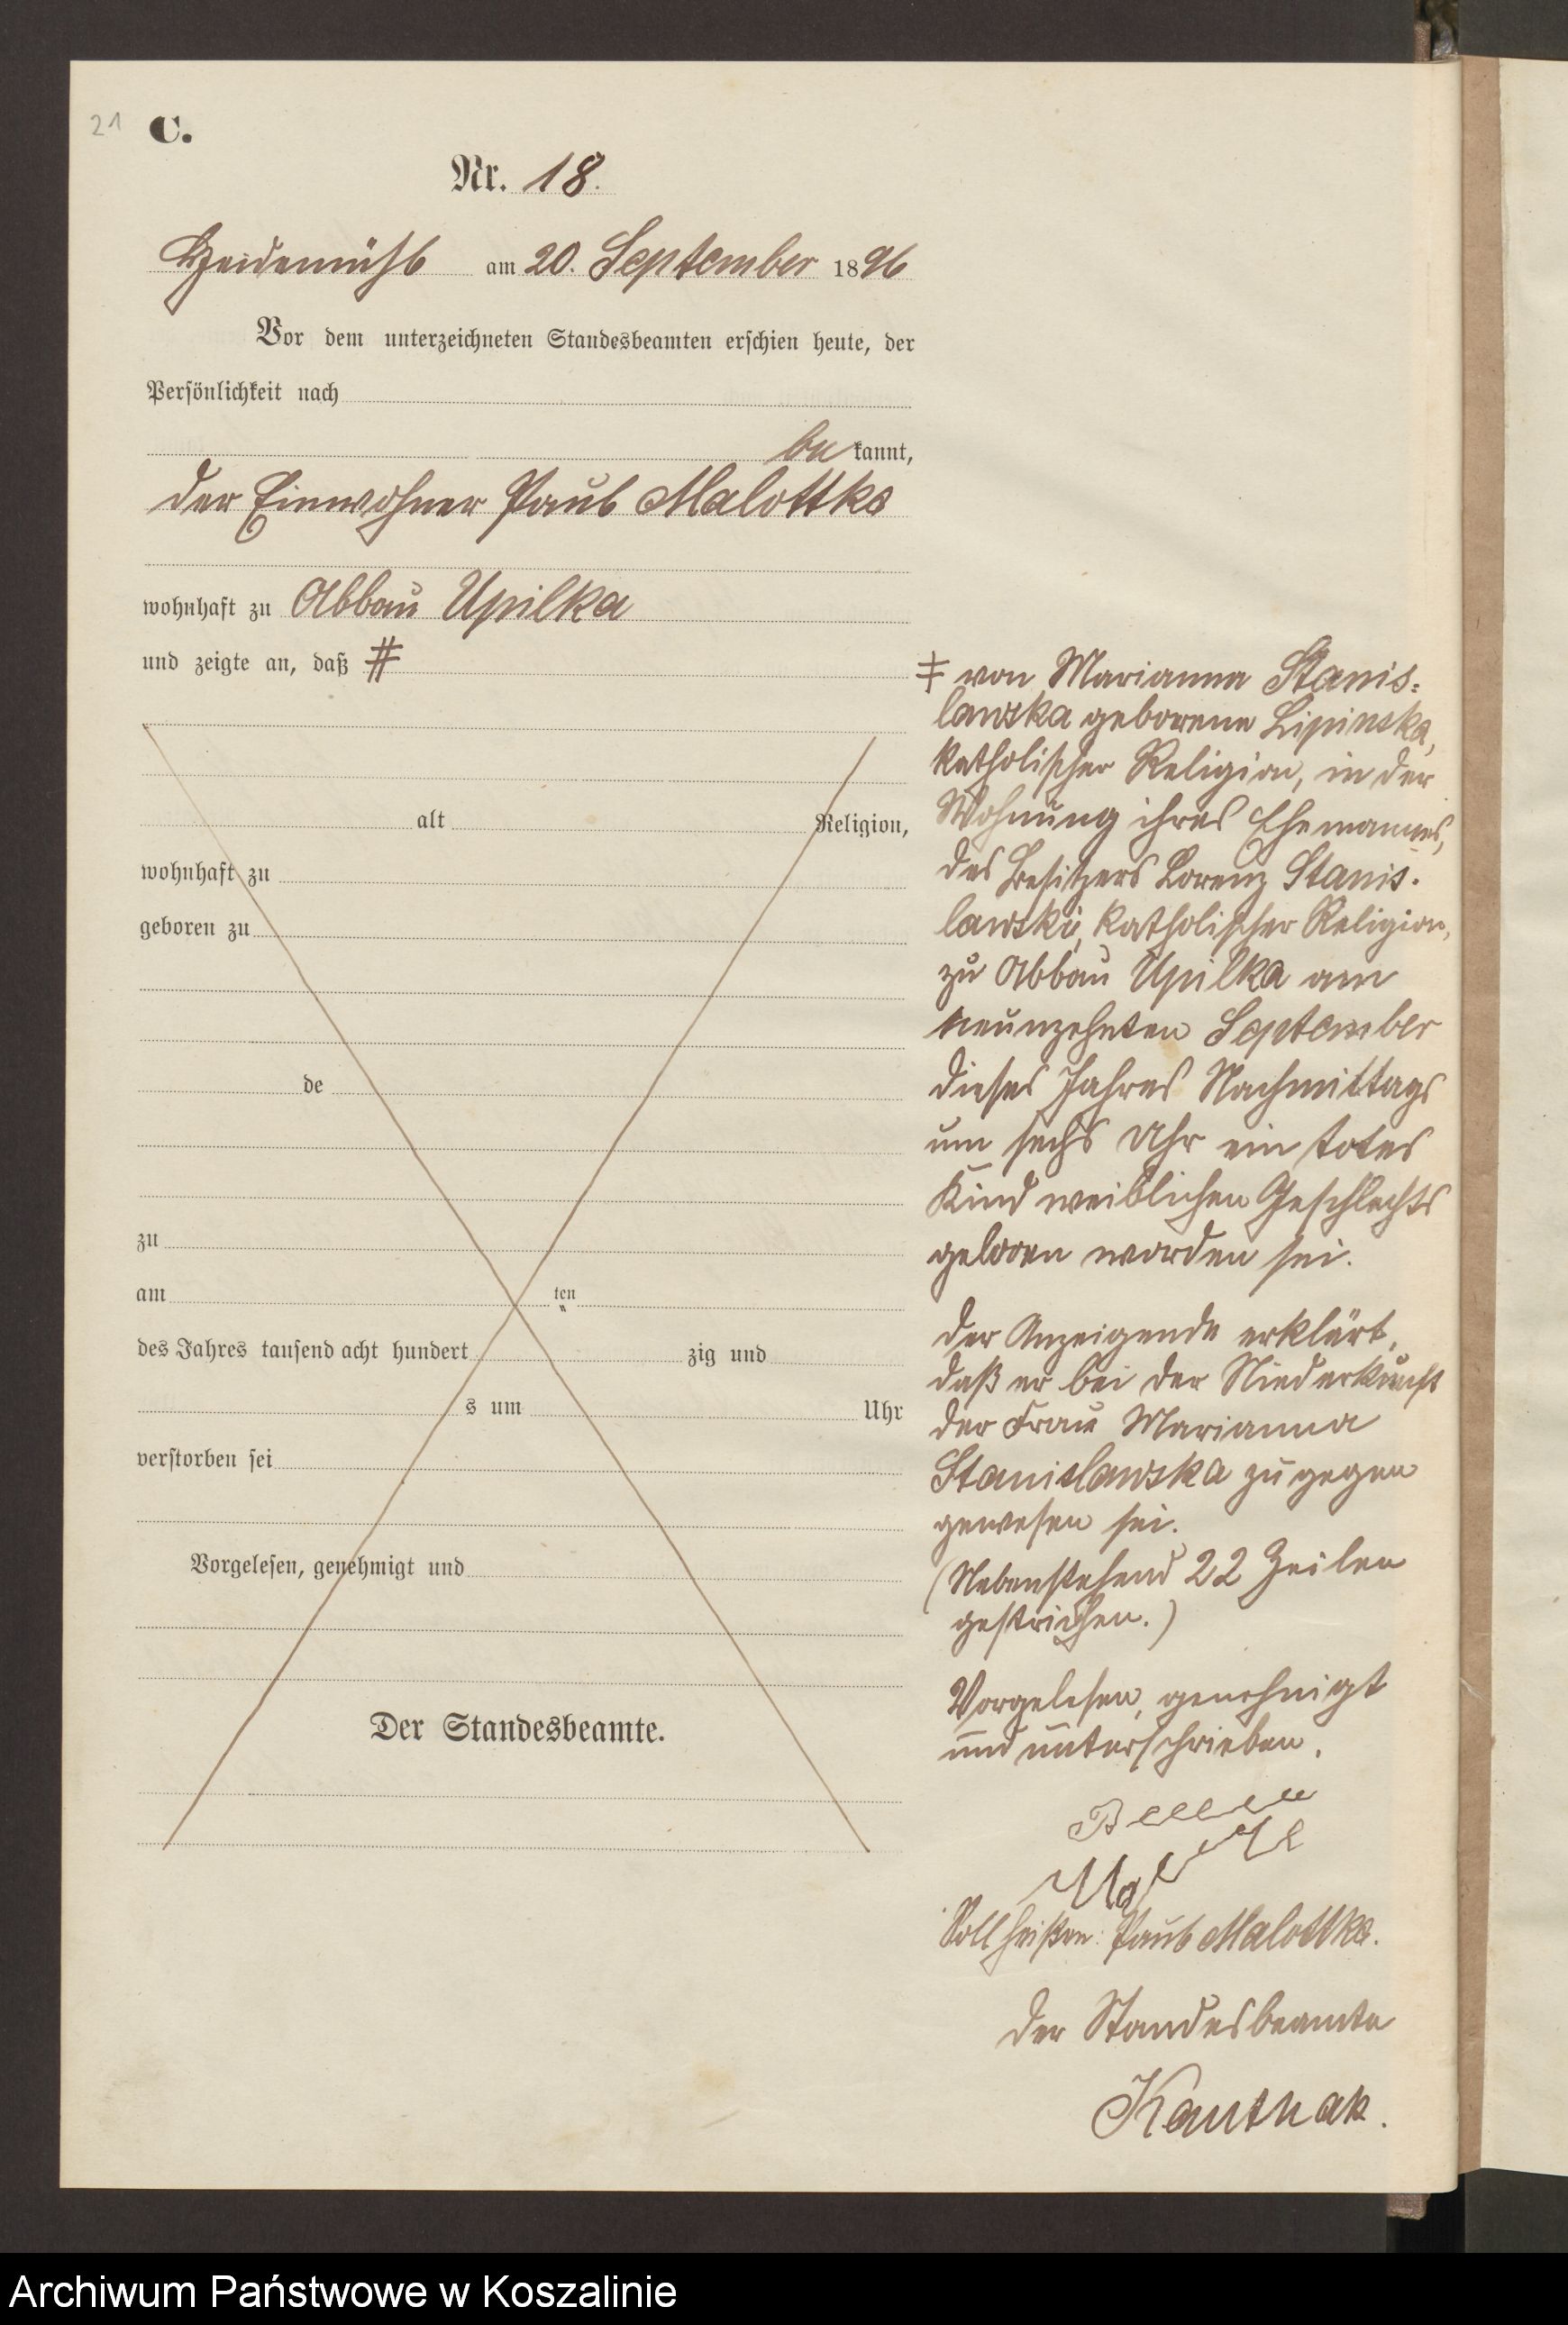 21 C.
Nr. 18.
Heidemühl am 20. September 1896
Vor dem unterzeichneten Standesbeamten erschien heute, der
Persönlichkeit nach
be kannt,
der Einwohner Paul Malottke
wohnhaft zu Abbau Upilka
und zeigte an, daß #
alt Religion,
wohnhaft zu
geboren zu
de
zu
am ten
des Jahres tausend acht hundert zig und
s um Uhr
verstorben sei
Vorgelesen, genehmigt und
Der Standesbeamte.
‡ von Marianna Stanis=
lawska geborene Lipinska,
katholischer Religion, in der
Wohnung ihres Ehemannes,
des Besitzers Lorenz Stanis-
lawski, katholischer Religion,
zu Abbau Upilka am
neunzehnten September
dieses Jahres Nachmittags
um sechs Uhr ein totes
Kind weiblichen Geschlechts
geboren worden sei.
Der Anzeigende erklärt,
daß er bei der Niederkunft
der Frau Marianna
Stanislawska zugegen
gewesen sei.
(Nebenstehend 22 Zeilen
gestrichen.)
Vorgelesen, genehmigt
und unterschrieben.
Soll heißen: Paul Malottke.
Der Standesbeamte
Archiwum Państwowe w Koszalinie